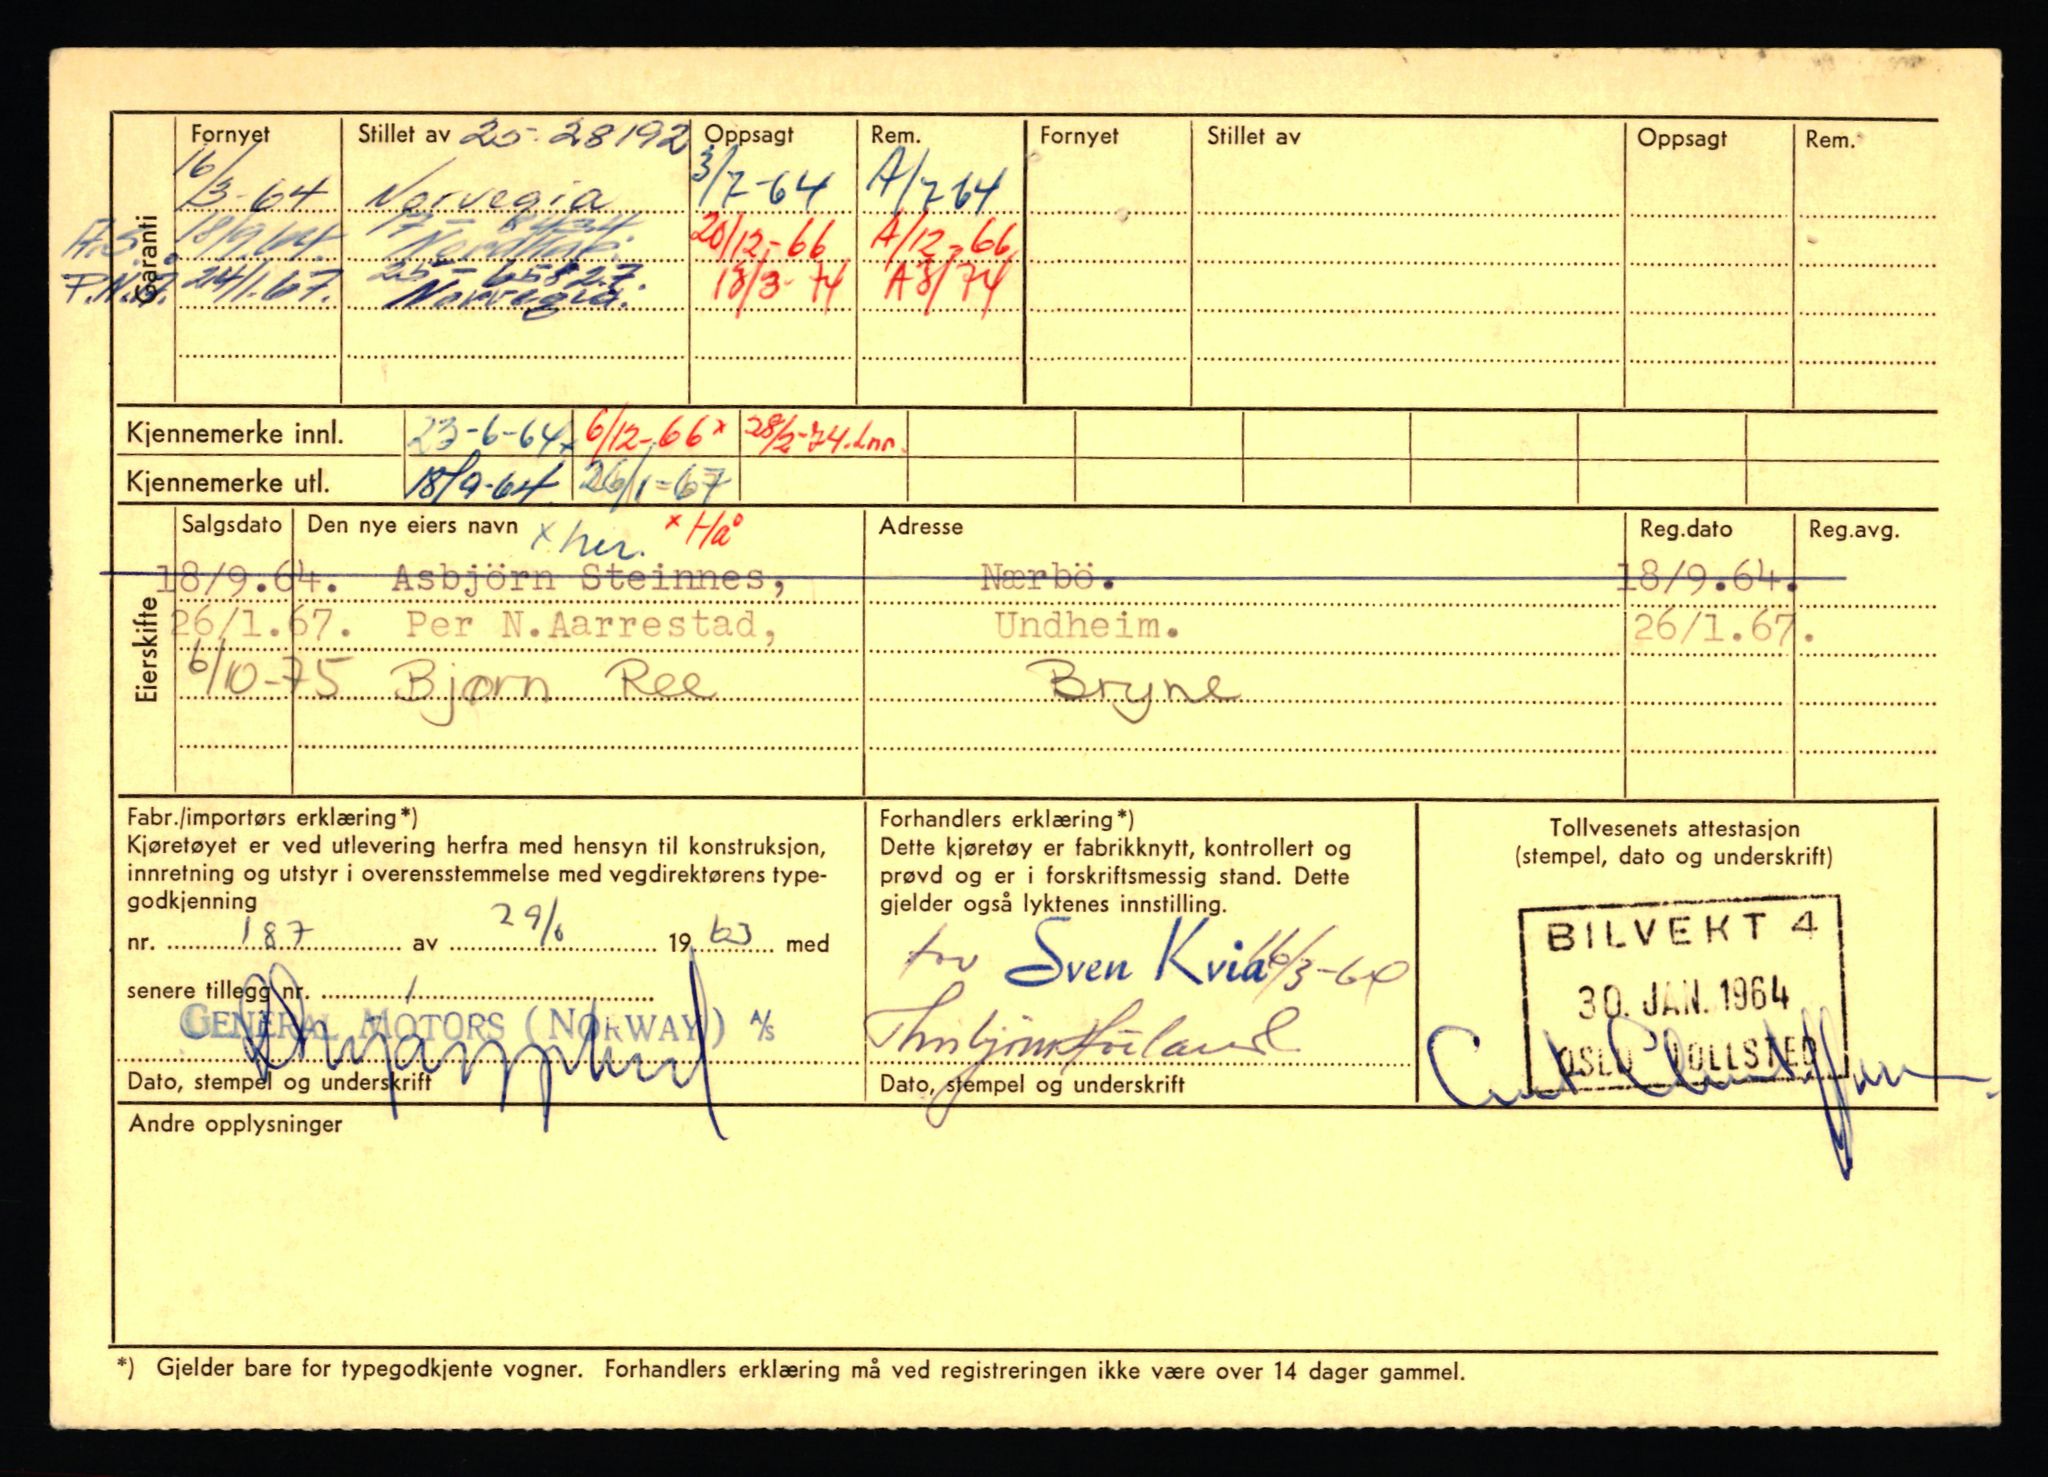 Garanti
Fornyet Stillet av 25-28192 Oppsagt Rem. Fornyet Stillet av Oppsagt Rem.
16/3-64 Norvegia 3/7-64 A/7-64
A.S. 18/9.64. 17-8434 Nordlab. 20/12-66 A/12-66
P.N.A. 24/1.67. 25-65827. Norvegia. 18/3-74 A3/74
Kjennemerke innl. 23-6-64x 6/12-66x 28/2-74.
Kjennemerke utl. 18/9-64 26/1=67
Eierskifte
Salgsdato Den nye eiers navn x her. x Hå Adresse Reg.dato Reg.avg.
18/9.64. Asbjörn Steinnes, Nærbö. 18/9.64.
26/1.67. Per N.Aarrestad, Undheim. 26/1.67.
6/10-75 Bjørn Ree Bryne
Fabr./importørs erklæring*)
Kjøretøyet er ved utlevering herfra med hensyn til konstruksjon,
innretning og utstyr i overensstemmelse med vegdirektørens type-
godkjenning
nr. 187 av 29/6 1963 med
senere tillegg nr. 1
GENERAL MOTORS (NORWAY) A/S
Dato, stempel og underskrift
Forhandlers erklæring*)
Dette kjøretøy er fabrikknytt, kontrollert og
prøvd og er i forskriftsmessig stand. Dette
gjelder også lyktenes innstilling.
for Sven Kvia 16/3-64
Dato, stempel og underskrift
Tollvesenets attestasjon
(stempel, dato og underskrift)
BILVEKT 4
30. JAN. 1964
OSLO TOLLSTED
Andre opplysninger
*) Gjelder bare for typegodkjente vogner. Forhandlers erklæring må ved registreringen ikke være over 14 dager gammel.